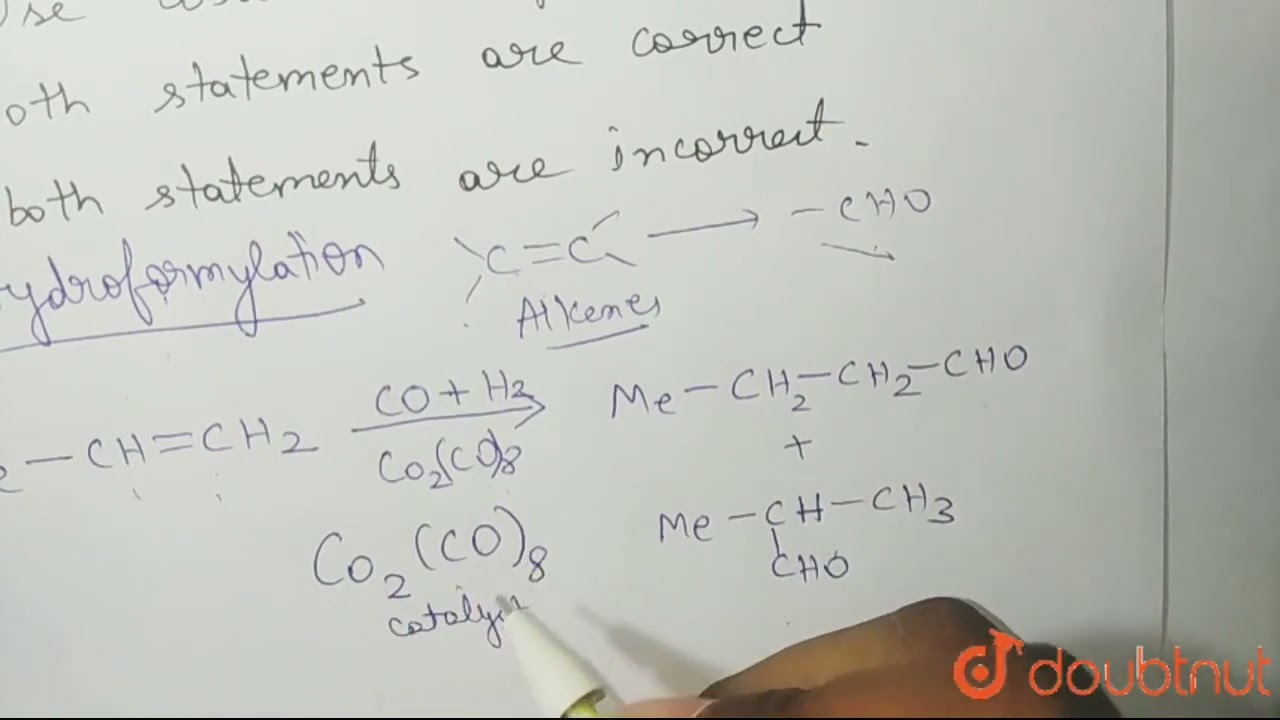 oth statements are correct
both statements are incorrect.
ydroformylation C=C → -CHO
Alkenes
-CH=CH2 CO+H2 Me-CH2-CH2-CHO
Co2(CO)8 +
Co2(CO)8 Me-CH-CH3
CHO
catalys
doubtnut